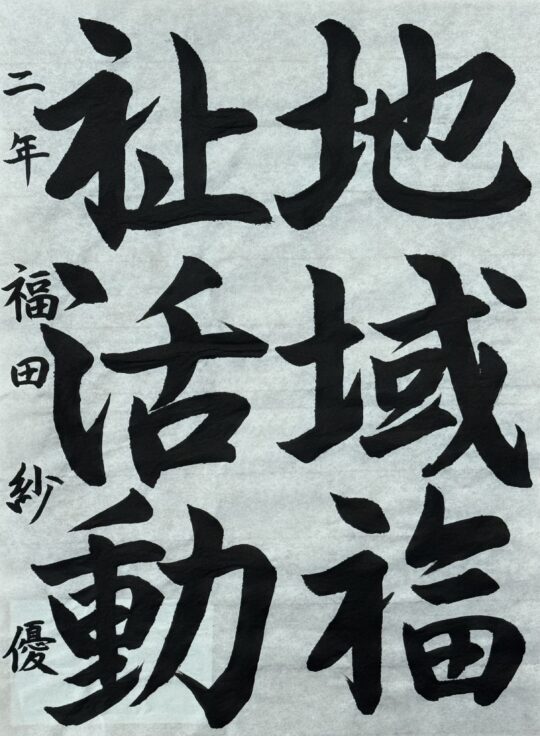 地域福
祉活動
二年 福田 紗優